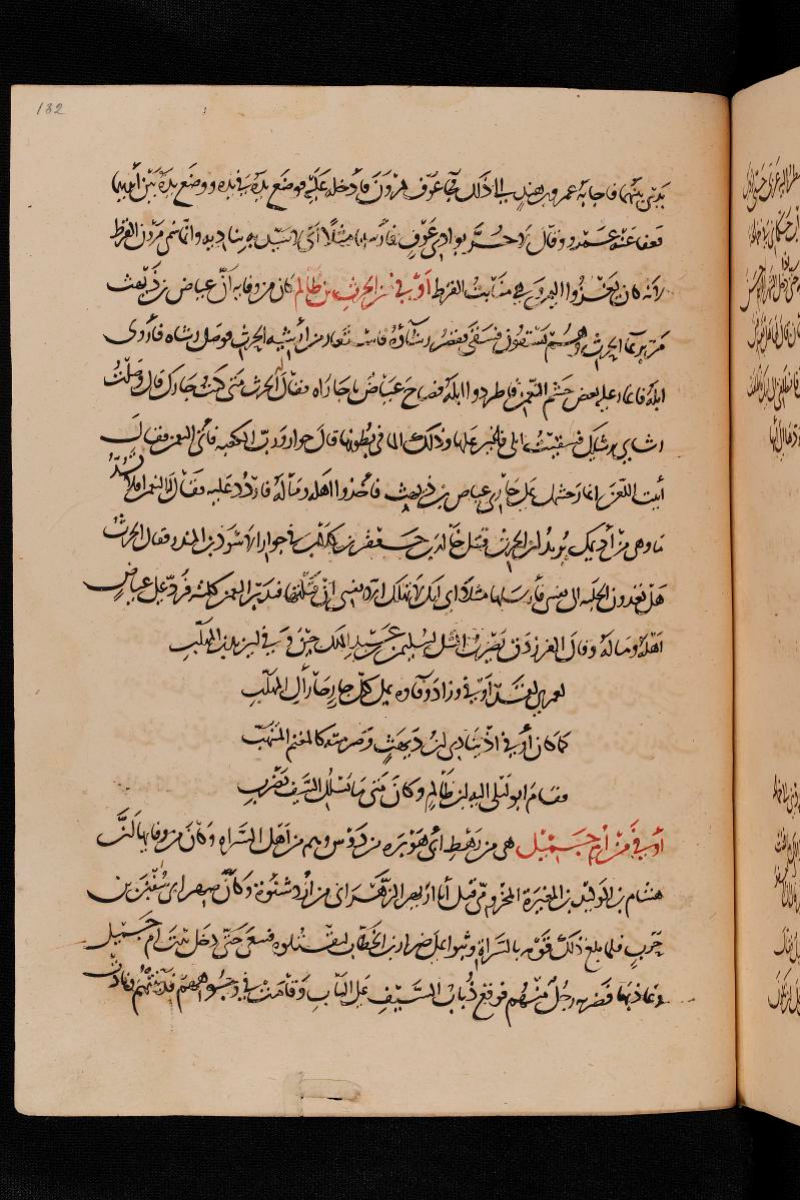 132
يدي بينهما فاجابه عمرو بن هند الى ذلك فجا عوف بمروان فأدخله عليه فوضع يده في يده ووضع يده بين أيديهما
فعفا عنه عمرو وقال لا حر بوادي عوف فأرسلها مثلا أي لا سيد به يناديه وانما سمي مروان القرظ
لأنه كان يغزوا اليمن وهي منابت القرظ أوفى من الحرث بن ظالم كان من وفايه أن عياض بن ديهث
مر برعاء الحرث وهم يستقون فسقى فقصر رشاؤه فاستعار من أرشية الحرث فوصل رشاه فأروى
ابله فاغار عليه بعض حشم النعمن فاطردوا ابله فصاح عياض يا جاراه فقال الحرث متى كنت جارك قال وصلت
رشاي برشايك فسقيت ابلي فاغير عليها وذلك الما في بطونها قال جوار ورب الكعبه فاتى النعمن فقال
أبيت اللعن اغار حشمك على جاري عياض بن ديهث فأخذوا اهله وماله فاردد عليه فقال له النعمن افلا تشد
ما وهى من أديمك يريد ان الحرث قتل خالد بن جعفر بن كلاب في جوار الاسود بن المنذر فقال الحرث
هل تعدون الحلبه الى نفسي فأرسلها مثلا اي انك لا تهلك الا نفسي ان قتلتها فتدبر النعمن كلمته فرد على عياض
اهله وماله وقال الفرزدق يضرب المثل لسليمن بن عبد الملك حين وفى ليزيد بن المهلب
لعمري لقد أوفى وزاد وفاوه على كل جار جار آل المهلب
كما كان أوفى اذ ينادي ابن ديهث وصرمته كالمغنم المنهب
فقام ابو ليلى اليه ابن ظالم وكان متى ما يسلل السيف يضرب
أوفى من أم جميل هي من رهط أبي هريره من دوس وهم من اهل السراه وكان من وفايها لأن
هشام بن الوليد بن المغيرة المخزومي قتل أبا أزيهر الزهراني من أزد شنوءة وكان صهر أبي سفين بن
حرب فلما بلغ ذلك قومه بالسراة وثبوا على ضرار بن الخطاب ليقتلوه فسعى حتى دخل بيت أم جميل
وعاذ بها فضربه رجل منهم فوقع ذباب السيف على الباب وقامت في وجوههم فذبتهم ونادت